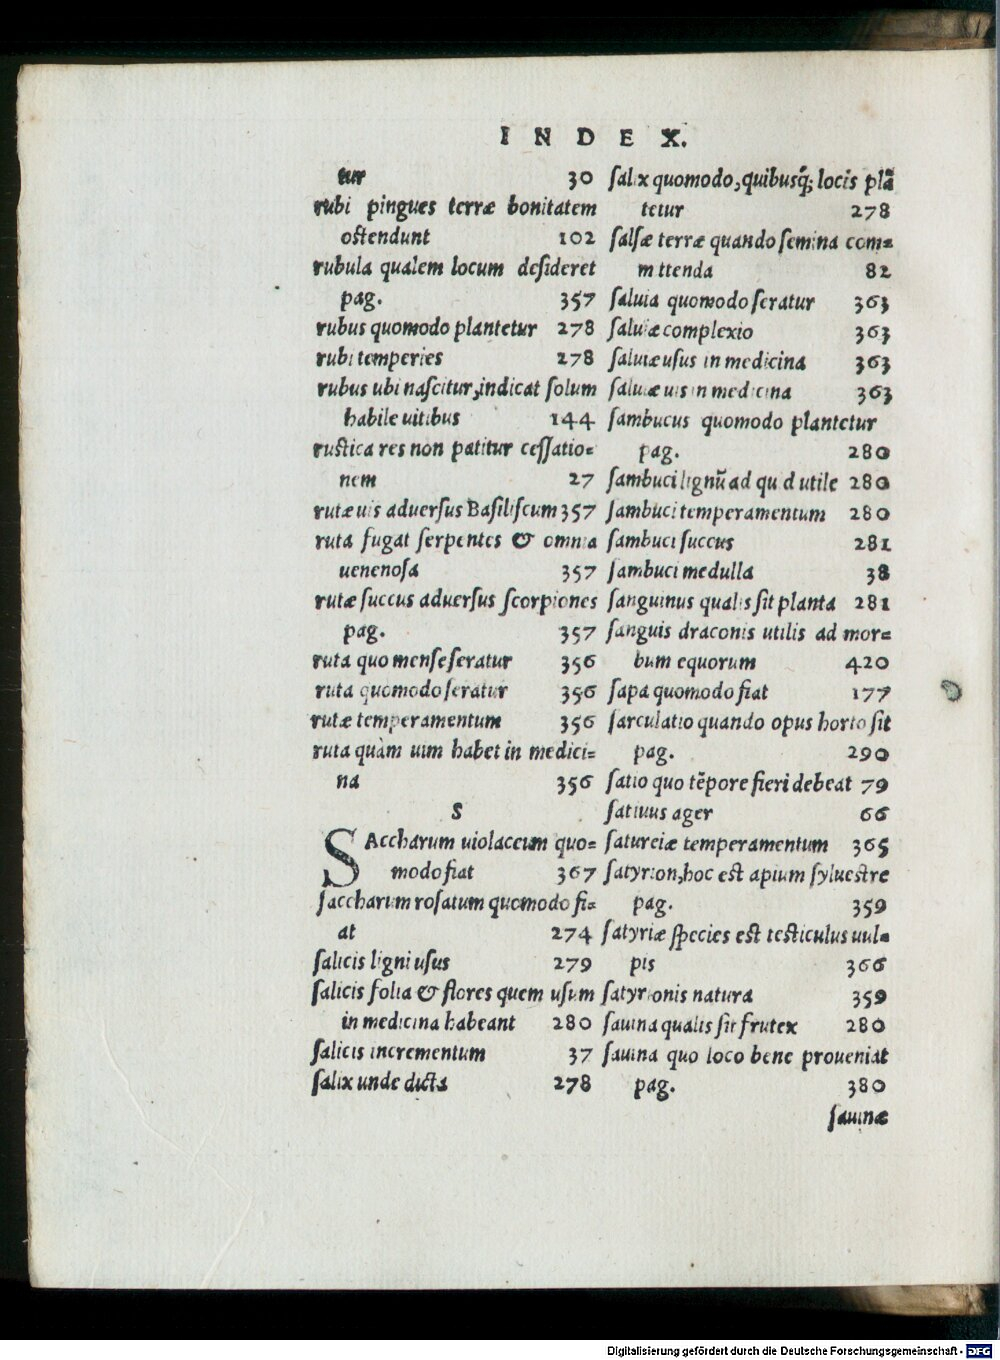 INDEX.
tur 30
rubi pingues terræ bonitatem
ostendunt 102
rubula qualem locum desideret
pag. 357
rubus quomodo plantetur 278
rubi temperies 278
rubus ubi nascitur, indicat solum
habile uitibus 144
rustica res non patitur cessatio=
nem 27
rutæ uis aduersus Basiliscum 357
ruta fugat serpentes & omnia
uenenosa 357
rutæ succus aduersus scorpiones
pag. 357
ruta quo mense seratur 356
ruta quomodo seratur 356
rutæ temperamentum 356
ruta quàm uim habet in medici=
na 356
S
SAccharum uiolaceum quo=
modo fiat 367
saccharum rosatum quomodo fi=
at 274
salicis ligni usus 279
salicis folia & flores quem usum
in medicina habeant 280
salicis incrementum 37
salix unde dicta 278
salix quomodo, quibusq́; locis plã
tetur 278
salsæ terræ quando semina com=
mittenda 82
saluia quomodo seratur 363
saluiæ complexio 363
saluiæ usus in medicina 363
saluiæ uis in medicina 363
sambucus quomodo plantetur
pag. 280
sambuci lignũ ad quid utile 280
sambuci temperamentum 280
sambuci succus 281
sambuci medulla 38
sanguinus qualis sit planta 281
sanguis draconis utilis ad mor=
bum equorum 420
sapa quomodo fiat 177
sarculatio quando opus horto sit
pag. 290
satio quo tẽpore fieri debeat 79
satiuus ager 66
satureiæ temperamentum 365
satyrion, hoc est apium syluestre
pag. 359
satyriæ species est testiculus uul=
pis 366
satyrionis natura 359
sauina qualis sit frutex 280
sauina quo loco bene proueniat
pag. 380
sauinæ
Digitalisierung gefördert durch die Deutsche Forschungsgemeinschaft - DFG